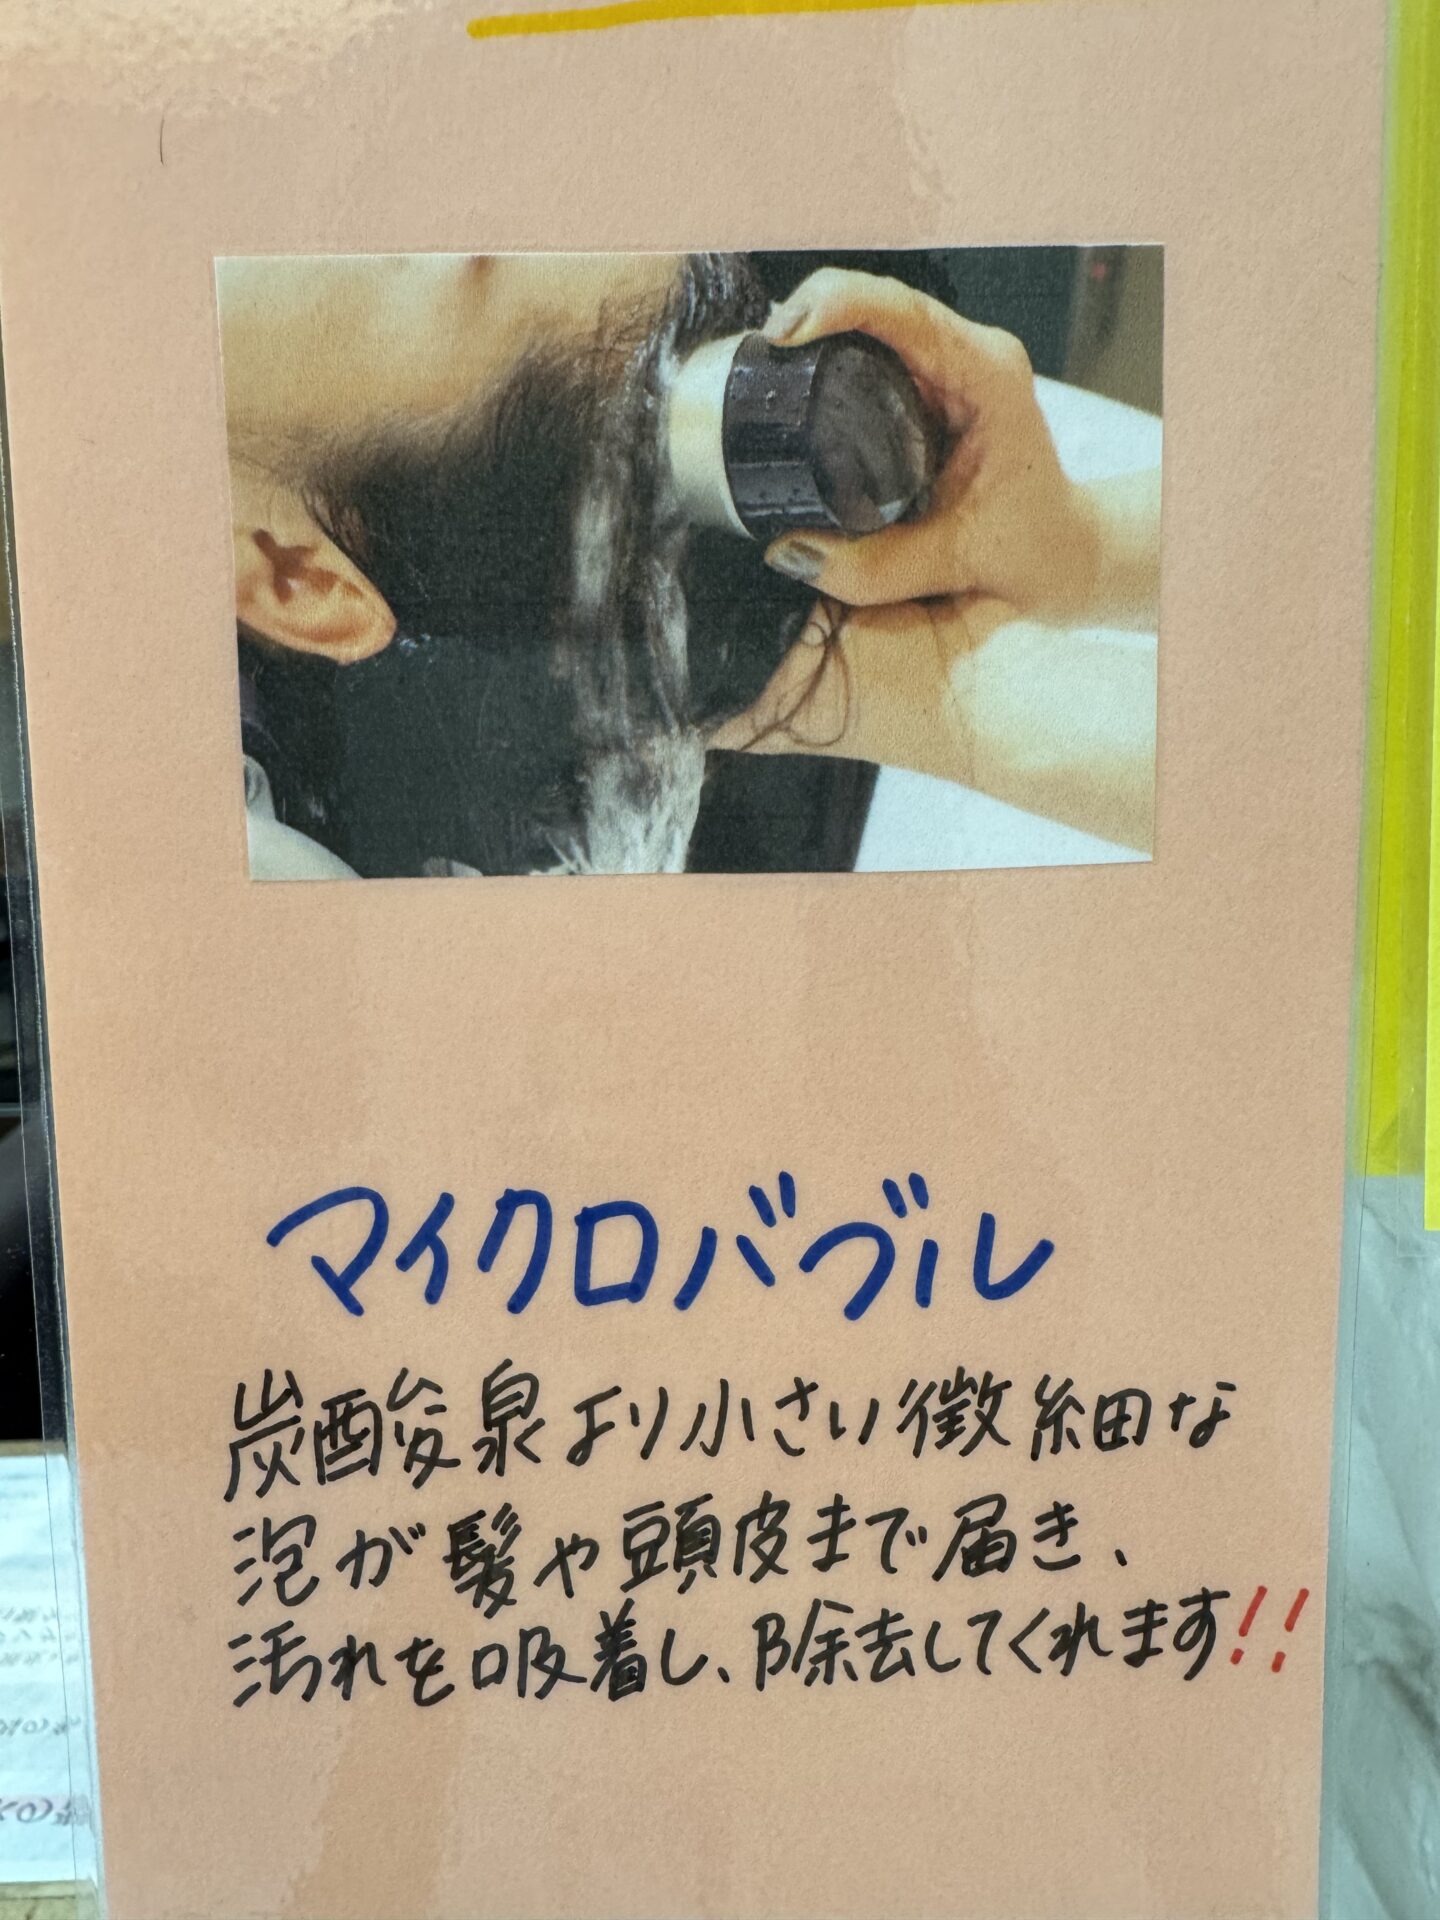 マイクロバブル
炭酸泉より小さい微細な
泡が髪や頭皮まで届き、
汚れを吸着し、除去してくれます!!